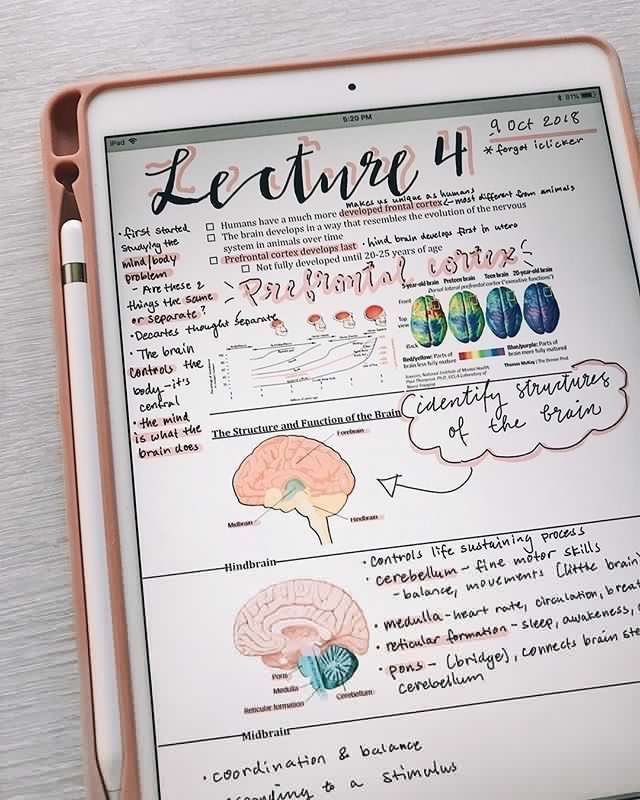 iPad
5:20 PM
91%
Lecture 4
9 Oct 2018
*forgot iclicker
makes us unique as humans
Humans have a much more developed frontal cortex
most different from animals
The brain develops in a way that resembles the evolution of the nervous
system in animals over time
Prefrontal cortex develops last
· hind brain develops first in utero
Not fully developed until 20-25 years of age
· first started
studying the
mind/body
problem
- Are these 2
things the same
or separate?
· Decartes thought separate
· The brain
controls the
body - it's
central
· the mind
is what the
brain does
Prefrontal cortex
5-year-old brain Preteen brain Teen brain 20-year-old brain
Dorsal lateral prefrontal cortex ("executive functions")
Front
Top
view
Back
Red/yellow: Parts of
brain less fully mature
Blue/purple: Parts of
brain more fully matured
Sources: National Institute of Mental Health;
Paul Thompson, Ph.D., UCLA Laboratory of
Neuro Imaging
Thomas McKay | The Denver Post
identify structures
of the brain
The Structure and Function of the Brain
Forebrain
Midbrain
Hindbrain
Hindbrain
· controls life sustaining process
· cerebellum - fine motor skills
- balance, movements (little brain)
· medulla - heart rate, circulation,
· reticular formation - sleep, awakeness,
· pons - (bridge), connects brain
cerebellum
Pons
Medulla
Reticular formation
Cerebellum
Midbrain
· coordination & balance
to a stimulus